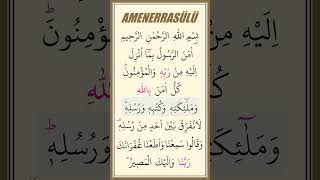 AMENERRASÜLÜ
بِسْمِ اللّٰهِ الرَّحْمٰنِ الرَّحِيمِ
اٰمَنَ الرَّسُولُ بِمَٓا اُنْزِلَ
اِلَيْهِ مِنْ رَبِّهٖ وَالْمُؤْمِنُونَۜ
كُلٌّ اٰمَنَ بِاللّٰهِ
وَمَلٰٓئِكَتِهٖ وَكُتُبِهٖ وَرُسُلِهٖۜ
لَا نُفَرِّقُ بَيْنَ اَحَدٍ مِنْ رُسُلِهٖ۠
وَقَالُوا سَمِعْنَا وَاَطَعْنَا غُفْرَانَكَ
رَبَّنَا وَاِلَيْكَ الْمَصِيرُ